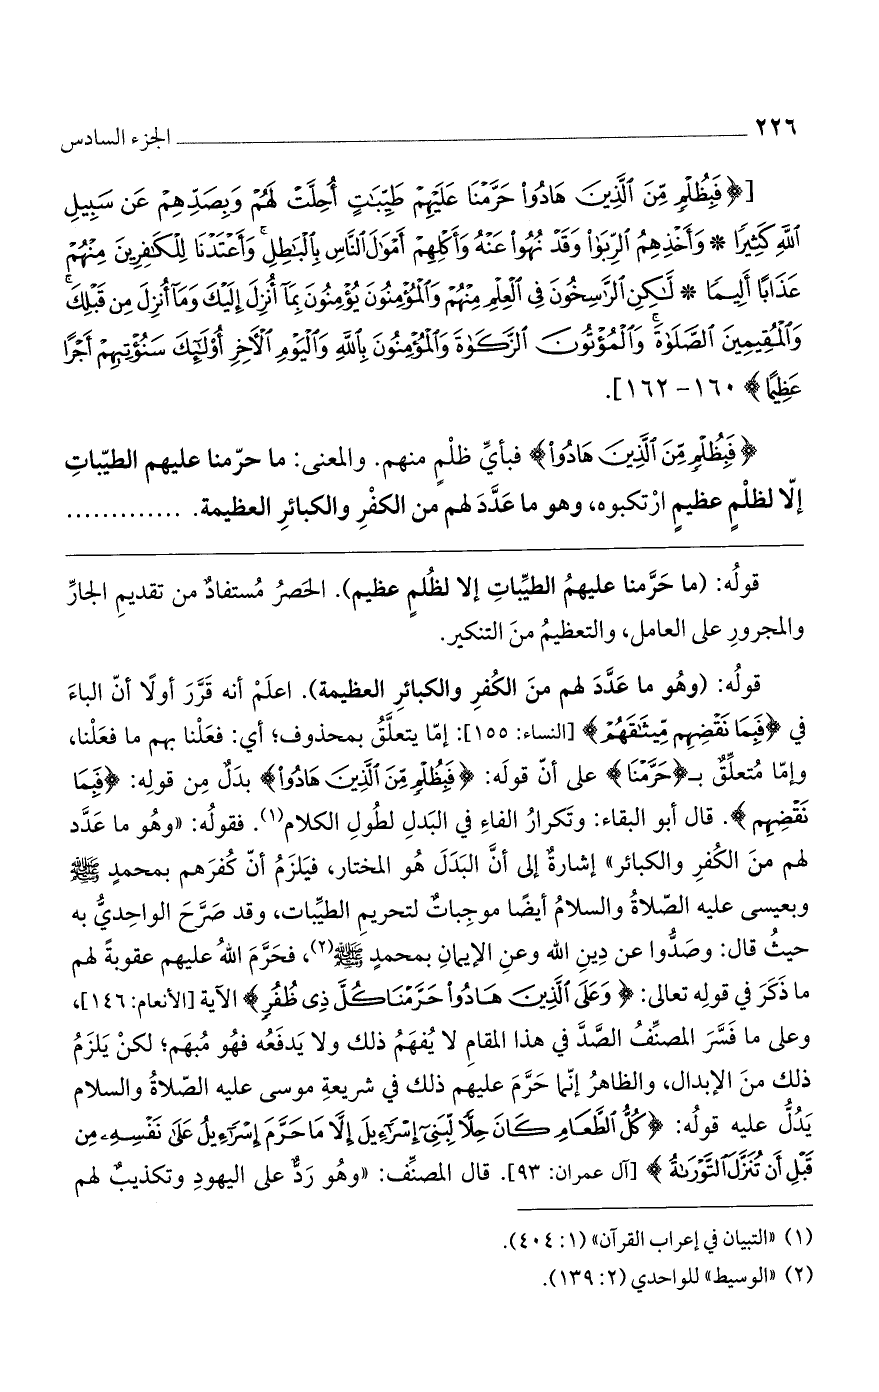 ٢٢٦ الجزء السادس
[﴿فَبِظُلْمٍ مِّنَ ٱلَّذِينَ هَادُوا۟ حَرَّمْنَا عَلَيْهِمْ طَيِّبَٰتٍ أُحِلَّتْ لَهُمْ وَبِصَدِّهِمْ عَن سَبِيلِ
ٱللَّهِ كَثِيرًا * وَأَخْذِهِمُ ٱلرِّبَوٰا۟ وَقَدْ نُهُوا۟ عَنْهُ وَأَكْلِهِمْ أَمْوَٰلَ ٱلنَّاسِ بِٱلْبَٰطِلِ ۚ وَأَعْتَدْنَا لِلْكَٰفِرِينَ مِنْهُمْ
عَذَابًا أَلِيمًا * لَّٰكِنِ ٱلرَّٰسِخُونَ فِى ٱلْعِلْمِ مِنْهُمْ وَٱلْمُؤْمِنُونَ يُؤْمِنُونَ بِمَآ أُنزِلَ إِلَيْكَ وَمَآ أُنزِلَ مِن قَبْلِكَ ۚ
وَٱلْمُقِيمِينَ ٱلصَّلَوٰةَ ۚ وَٱلْمُؤْتُونَ ٱلزَّكَوٰةَ وَٱلْمُؤْمِنُونَ بِٱللَّهِ وَٱلْيَوْمِ ٱلْءَاخِرِ أُو۟لَٰٓئِكَ سَنُؤْتِيهِمْ أَجْرًا
عَظِيمًا﴾ ١٦٠ - ١٦٢].
﴿فَبِظُلْمٍ مِّنَ ٱلَّذِينَ هَادُوا۟﴾ فبأيِّ ظلْمٍ منهم. والمعنى: ما حرّمنا عليهم الطيّباتِ
إلّا لظلْمٍ عظيمٍ ارْتكبوه، وهو ما عَدَّدَ لهم من الكفْرِ والكبائرِ العظيمة. .............
قولُه: (ما حَرَّمنا عليهمُ الطيِّباتِ إلا لظُلمٍ عظيم). الحَصرُ مُستفادٌ من تقديمِ الجارِّ
والمجرورِ على العامل، والتعظيمُ منَ التنكير.
قولُه: (وهُو ما عَدَّدَ لهم منَ الكُفرِ والكبائرِ العظيمة). اعلَمْ أنه قَرَّرَ أولًا أنّ الباءَ
في ﴿فَبِمَا نَقْضِهِم مِّيثَٰقَهُمْ﴾ [النساء: ١٥٥]: إمّا يتعلَّقُ بمحذوف؛ أي: فعَلْنا بهم ما فعَلْنا،
وإمّا مُتعلِّقٌ بـ﴿حَرَّمْنَا﴾ على أنّ قولَه: ﴿فَبِظُلْمٍ مِّنَ ٱلَّذِينَ هَادُوا۟﴾ بدَلٌ مِن قولِه: ﴿فَبِمَا
نَقْضِهِم﴾. قال أبو البقاء: وتَكرارُ الفاءِ في البَدلِ لطُولِ الكلام(١). فقولُه: «وهُو ما عَدَّد
لهم منَ الكُفرِ والكبائر» إشارةٌ إلى أنَّ البَدَلَ هُو المختار، فيَلزَمُ أنّ كُفرَهم بمحمدٍ ﷺ
وبعيسى عليه الصّلاةُ والسلامُ أيضًا موجِباتٌ لتحريمِ الطيِّبات، وقد صَرَّحَ الواحِديُّ به
حيثُ قال: وصَدُّوا عن دِينِ الله وعنِ الإيمانِ بمحمدٍ ﷺ(٢)، فحَرَّمَ اللهُ عليهم عقوبةً لهم
ما ذَكَرَ في قولِه تعالى: ﴿وَعَلَى ٱلَّذِينَ هَادُوا۟ حَرَّمْنَا كُلَّ ذِى ظُفُرٍ﴾ الآية [الأنعام: ١٤٦]،
وعلى ما فَسَّرَ المصنِّفُ الصَّدَّ في هذا المقامِ لا يُفهَمُ ذلك ولا يَدفَعُه فهُو مُبهَم؛ لكنْ يَلزَمُ
ذلك منَ الإبدال، والظاهرُ إنّما حَرَّمَ عليهم ذلك في شريعةِ موسى عليه الصّلاةُ والسلام
يَدُلُّ عليه قولُه: ﴿كُلُّ ٱلطَّعَامِ كَانَ حِلًّا لِّبَنِىٓ إِسْرَٰٓءِيلَ إِلَّا مَا حَرَّمَ إِسْرَٰٓءِيلُ عَلَىٰ نَفْسِهِۦ مِن
قَبْلِ أَن تُنَزَّلَ ٱلتَّوْرَىٰةُ﴾ [آل عمران: ٩٣]. قال المصنِّف: «وهُو رَدٌّ على اليهودِ وتكذيبٌ لهم
(١) «التبيان في إعراب القرآن» (١: ٤٠٤).
(٢) «الوسيط» للواحدي (٢: ١٣٩).